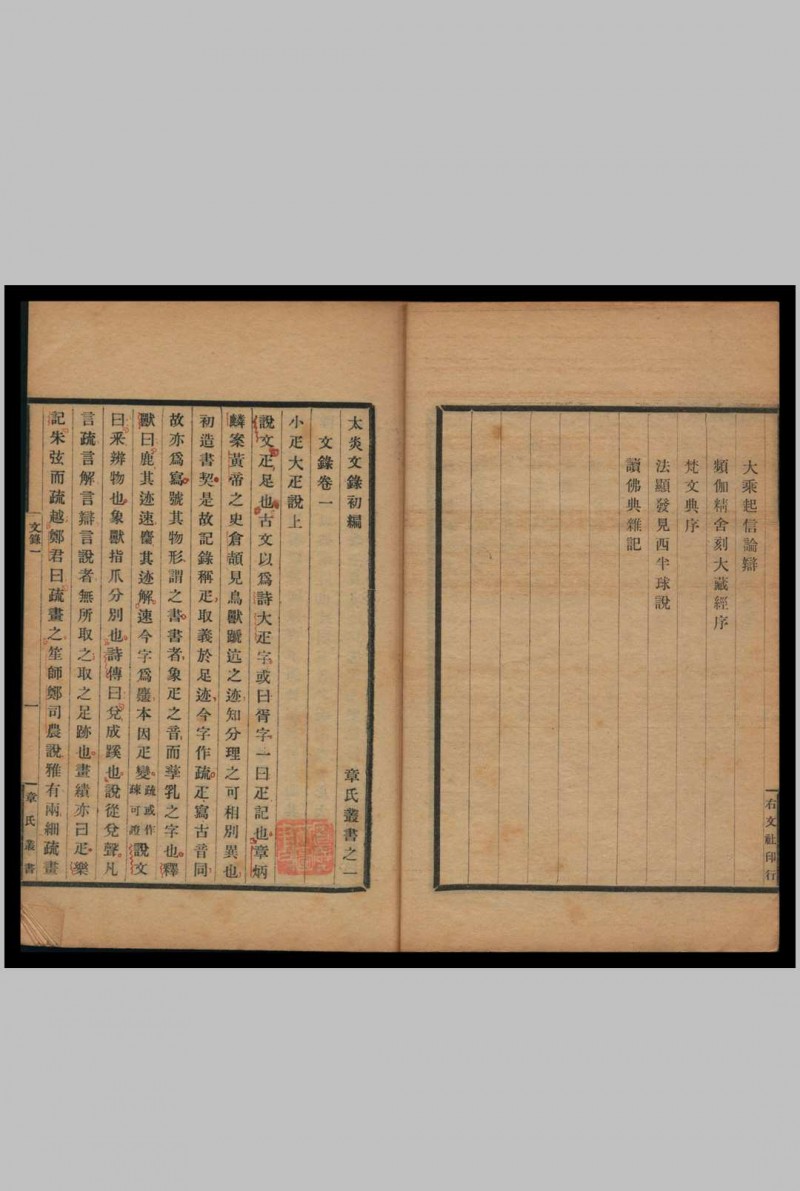 大乘起信論辯
頻伽精舍刻大藏經序
梵文典序
法顯發見西半球說
讀佛典雜記
右文社印行
太炎文錄初編　章氏叢書之一
文錄卷一
小疋大疋說上
說文疋足也古文以爲詩大疋字或曰胥字一曰疋記也章炳
麟案黃帝之史倉頡見鳥獸蹏迒之迹知分理之可相別異也
初造書契是故記錄稱疋取義於足迹今字作疏疋寫古音同
故亦爲寫號其物形謂之書書者象疋之音而孳乳之字也釋
獸曰鹿其迹速麕其迹解速今字爲麤本因疋變疏或作疎可證說文
曰釆辨物也象獸指爪分別也詩傳曰兌成蹊也說從兌聲凡
言疏言解言辯言說者無所取之取之足跡也畫繢亦曰疋樂
記朱弦而疏越鄭君曰疏畫之笙師鄭司農說雅有兩細疏畫
文錄一
一
章氏叢書